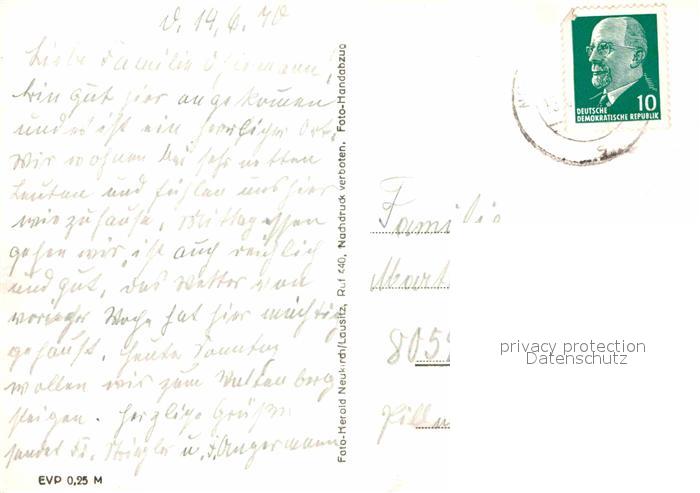 d. 14.6.70
Liebe Familie
bin gut hier angekommen
und es ist ein herrlicher Ort.
Wir wohnen bei sehr netten
Leuten und fühlen uns hier
wie zuhause, Mittagessen
gehen wir, ist auch reichlich
und gut, das Wetter von
voriger Woche hat hier mächtig
gehaust, heute Sonntag
wollen wir zum Valtenberg
steigen. Herzliche Grüße
sendet Fr. u. F. Angermann
EVP 0,25 M
Foto-Herold Neukirch/Lausitz, Ruf 440, Nachdruck verboten, Foto-Handabzug
10
DEUTSCHE
DEMOKRATISCHE REPUBLIK
Familie
Mart
805
privacy protection
Datenschutz